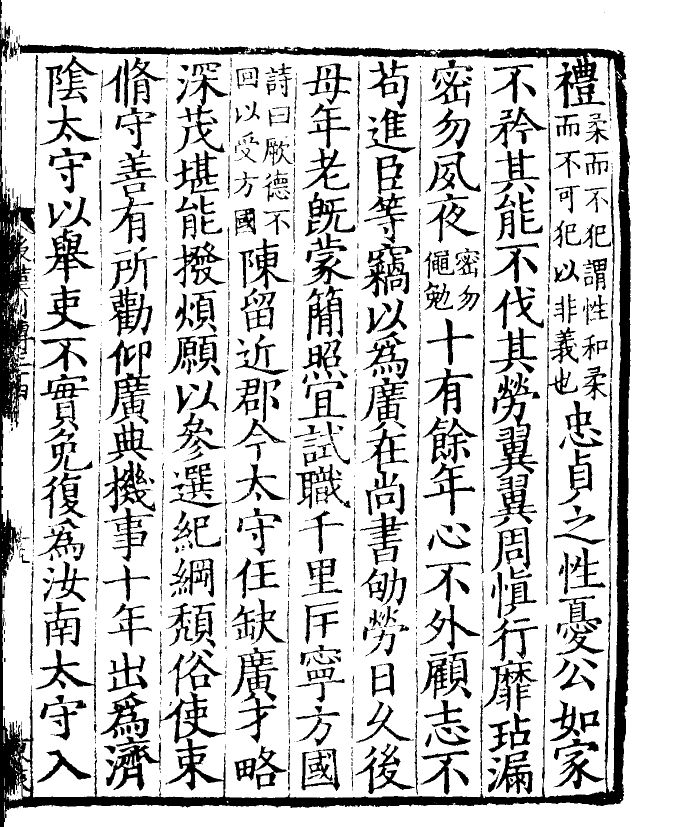 禮柔而不犯謂性和柔而不可犯以非義也忠貞之性憂公如家
不矜其能不伐其勞翼翼周慎行靡玷漏
密勿夙夜密勿僶勉十有餘年心不外顧志不
苟進臣等竊以爲廣在尚書劬勞日久後
母年老旣蒙簡照宜試職千里匡寧方國
詩曰厥德不回以受方國陳留近郡今太守任缺廣才略
深茂堪能撥煩願以參選紀綱頹俗使束
脩守善有所勸仰廣典機事十年出爲濟
陰太守以舉吏不實免復爲汝南太守入